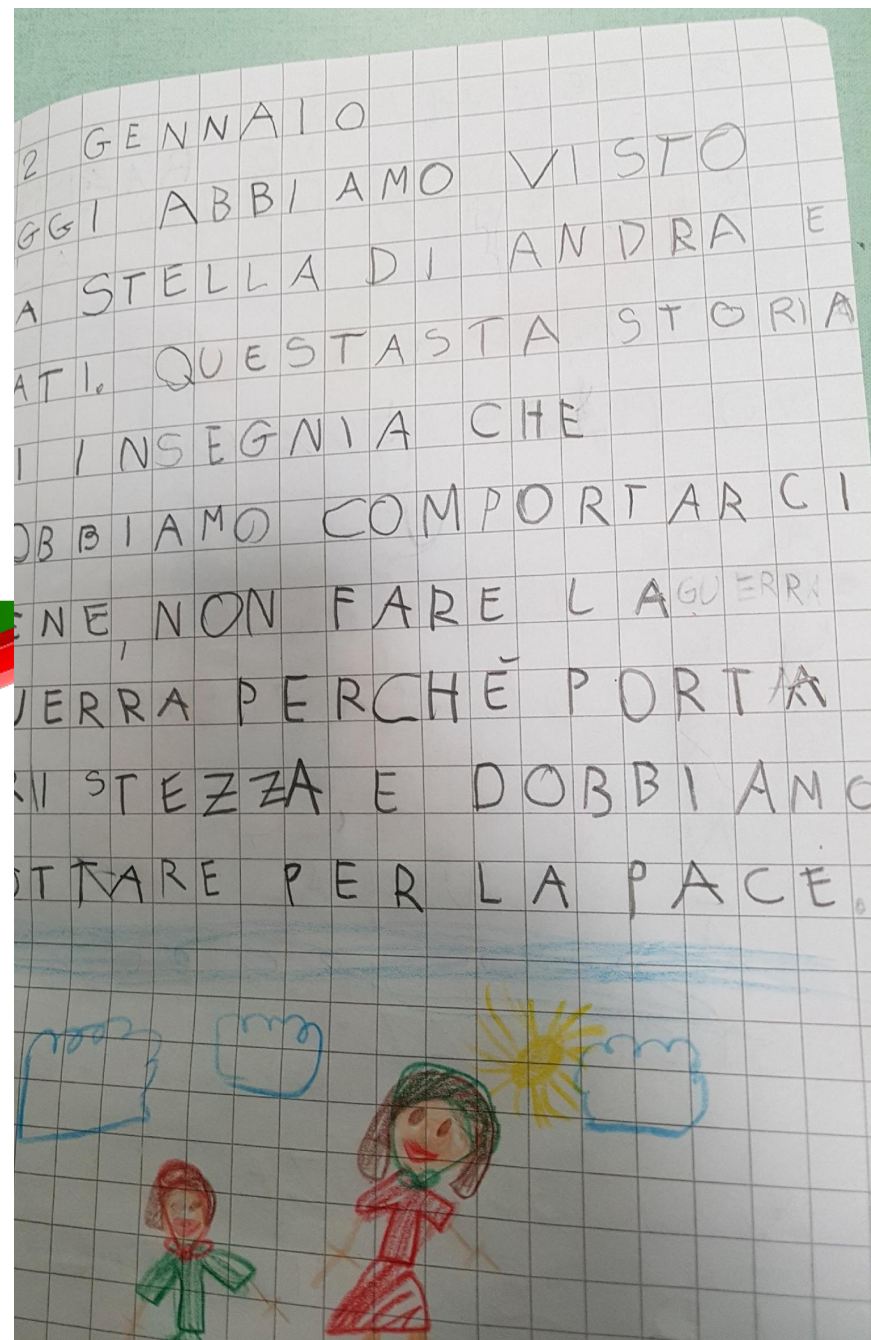 2 GENNAIO
GGI ABBIAMO VISTO
A STELLA DI ANDRA E
ATI. QUESTASTA STORIA
I INSEGNIA CHE
OBBIAMO COMPORTARCI
ENE, NON FARE LA GUERRA
UERRA PERCHÉ PORTA
RISTEZZA E DOBBIAMO
OTTARE PER LA PACE.